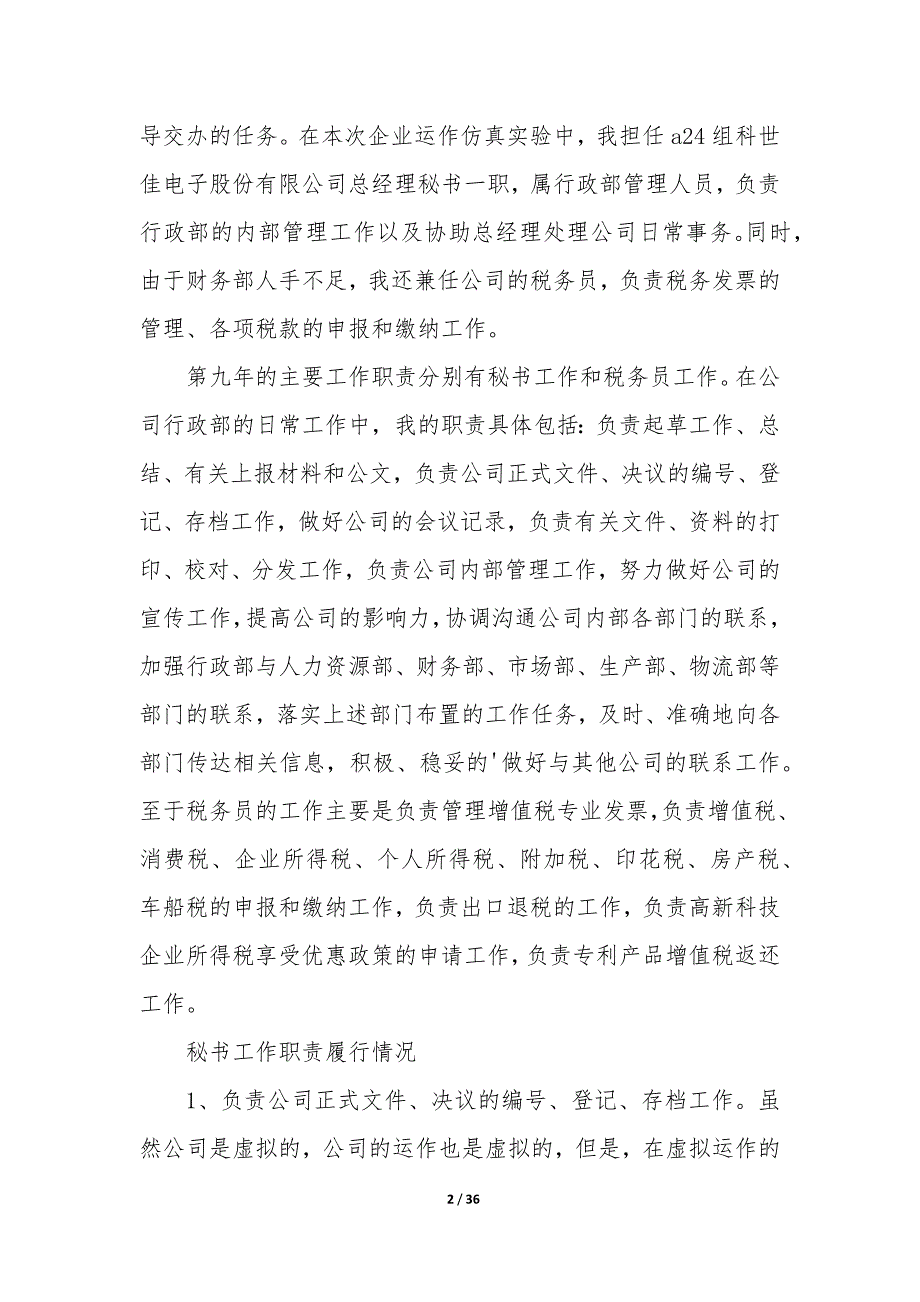 导交办的任务。在本次企业运作仿真实验中，我担任 a24 组科世
佳电子股份有限公司总经理秘书一职，属行政部管理人员，负责
行政部的内部管理工作以及协助总经理处理公司日常事务。同时，
由于财务部人手不足，我还兼任公司的税务员，负责税务发票的
管理、各项税款的申报和缴纳工作。
第九年的主要工作职责分别有秘书工作和税务员工作。在公
司行政部的日常工作中，我的职责具体包括：负责起草工作、总
结、有关上报材料和公文，负责公司正式文件、决议的编号、登
记、存档工作，做好公司的会议记录，负责有关文件、资料的打
印、校对、分发工作，负责公司内部管理工作，努力做好公司的
宣传工作，提高公司的影响力，协调沟通公司内部各部门的联系，
加强行政部与人力资源部、财务部、市场部、生产部、物流部等
部门的联系，落实上述部门布置的工作任务，及时、准确地向各
部门传达相关信息，积极、稳妥的'做好与其他公司的联系工作。
至于税务员的工作主要是负责管理增值税专业发票，负责增值税、
消费税、企业所得税、个人所得税、附加税、印花税、房产税、
车船税的申报和缴纳工作，负责出口退税的工作，负责高新科技
企业所得税享受优惠政策的申请工作，负责专利产品增值税返还
工作。
秘书工作职责履行情况
1、负责公司正式文件、决议的编号、登记、存档工作。虽
然公司是虚拟的，公司的运作也是虚拟的，但是，在虚拟运作的
2 / 36